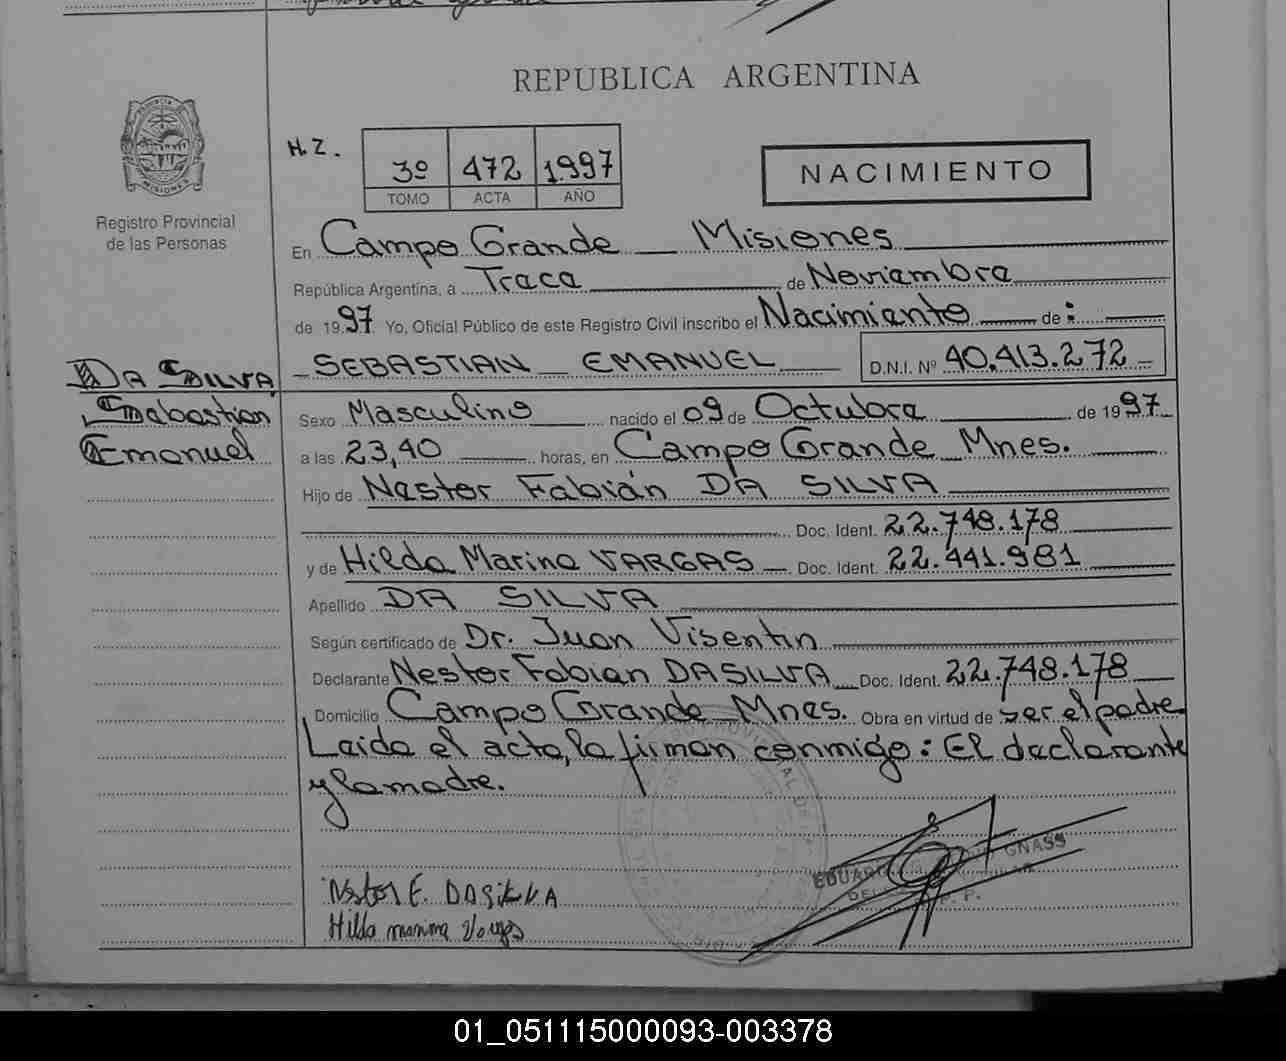 REPUBLICA ARGENTINA
H.Z.
3º 472 1.997
TOMO ACTA AÑO
NACIMIENTO
PROVINCIA
MISIONES
Registro Provincial
de las Personas
En Campo Grande Misiones
República Argentina, a Trece de Noviembre
de 1997 Yo, Oficial Público de este Registro Civil inscribo el Nacimiento de:
SEBASTIAN EMANUEL D.N.I. Nº 40.413.272
DA SILVA,
Sebastian
Emanuel
Sexo Masculino nacido el 09 de Octubre de 1997
a las 23,40 horas, en Campo Grande Mnes.
Hijo de Nestor Fabián DA SILVA
Doc. Ident. 22.748.178
y de Hilda Marina VARGAS Doc. Ident. 22.441.981
Apellido DA SILVA
Según certificado de Dr. Juan Visentin
Declarante Nestor Fabian DA SILVA Doc. Ident. 22.748.178
Domicilio Campo Grande Mnes. Obra en virtud de ser el padre
Leida el acta, la firman conmigo: El declarante
y la madre.
GNASS
Nestor F. DA SILVA
Hilda
01_051115000093-003378